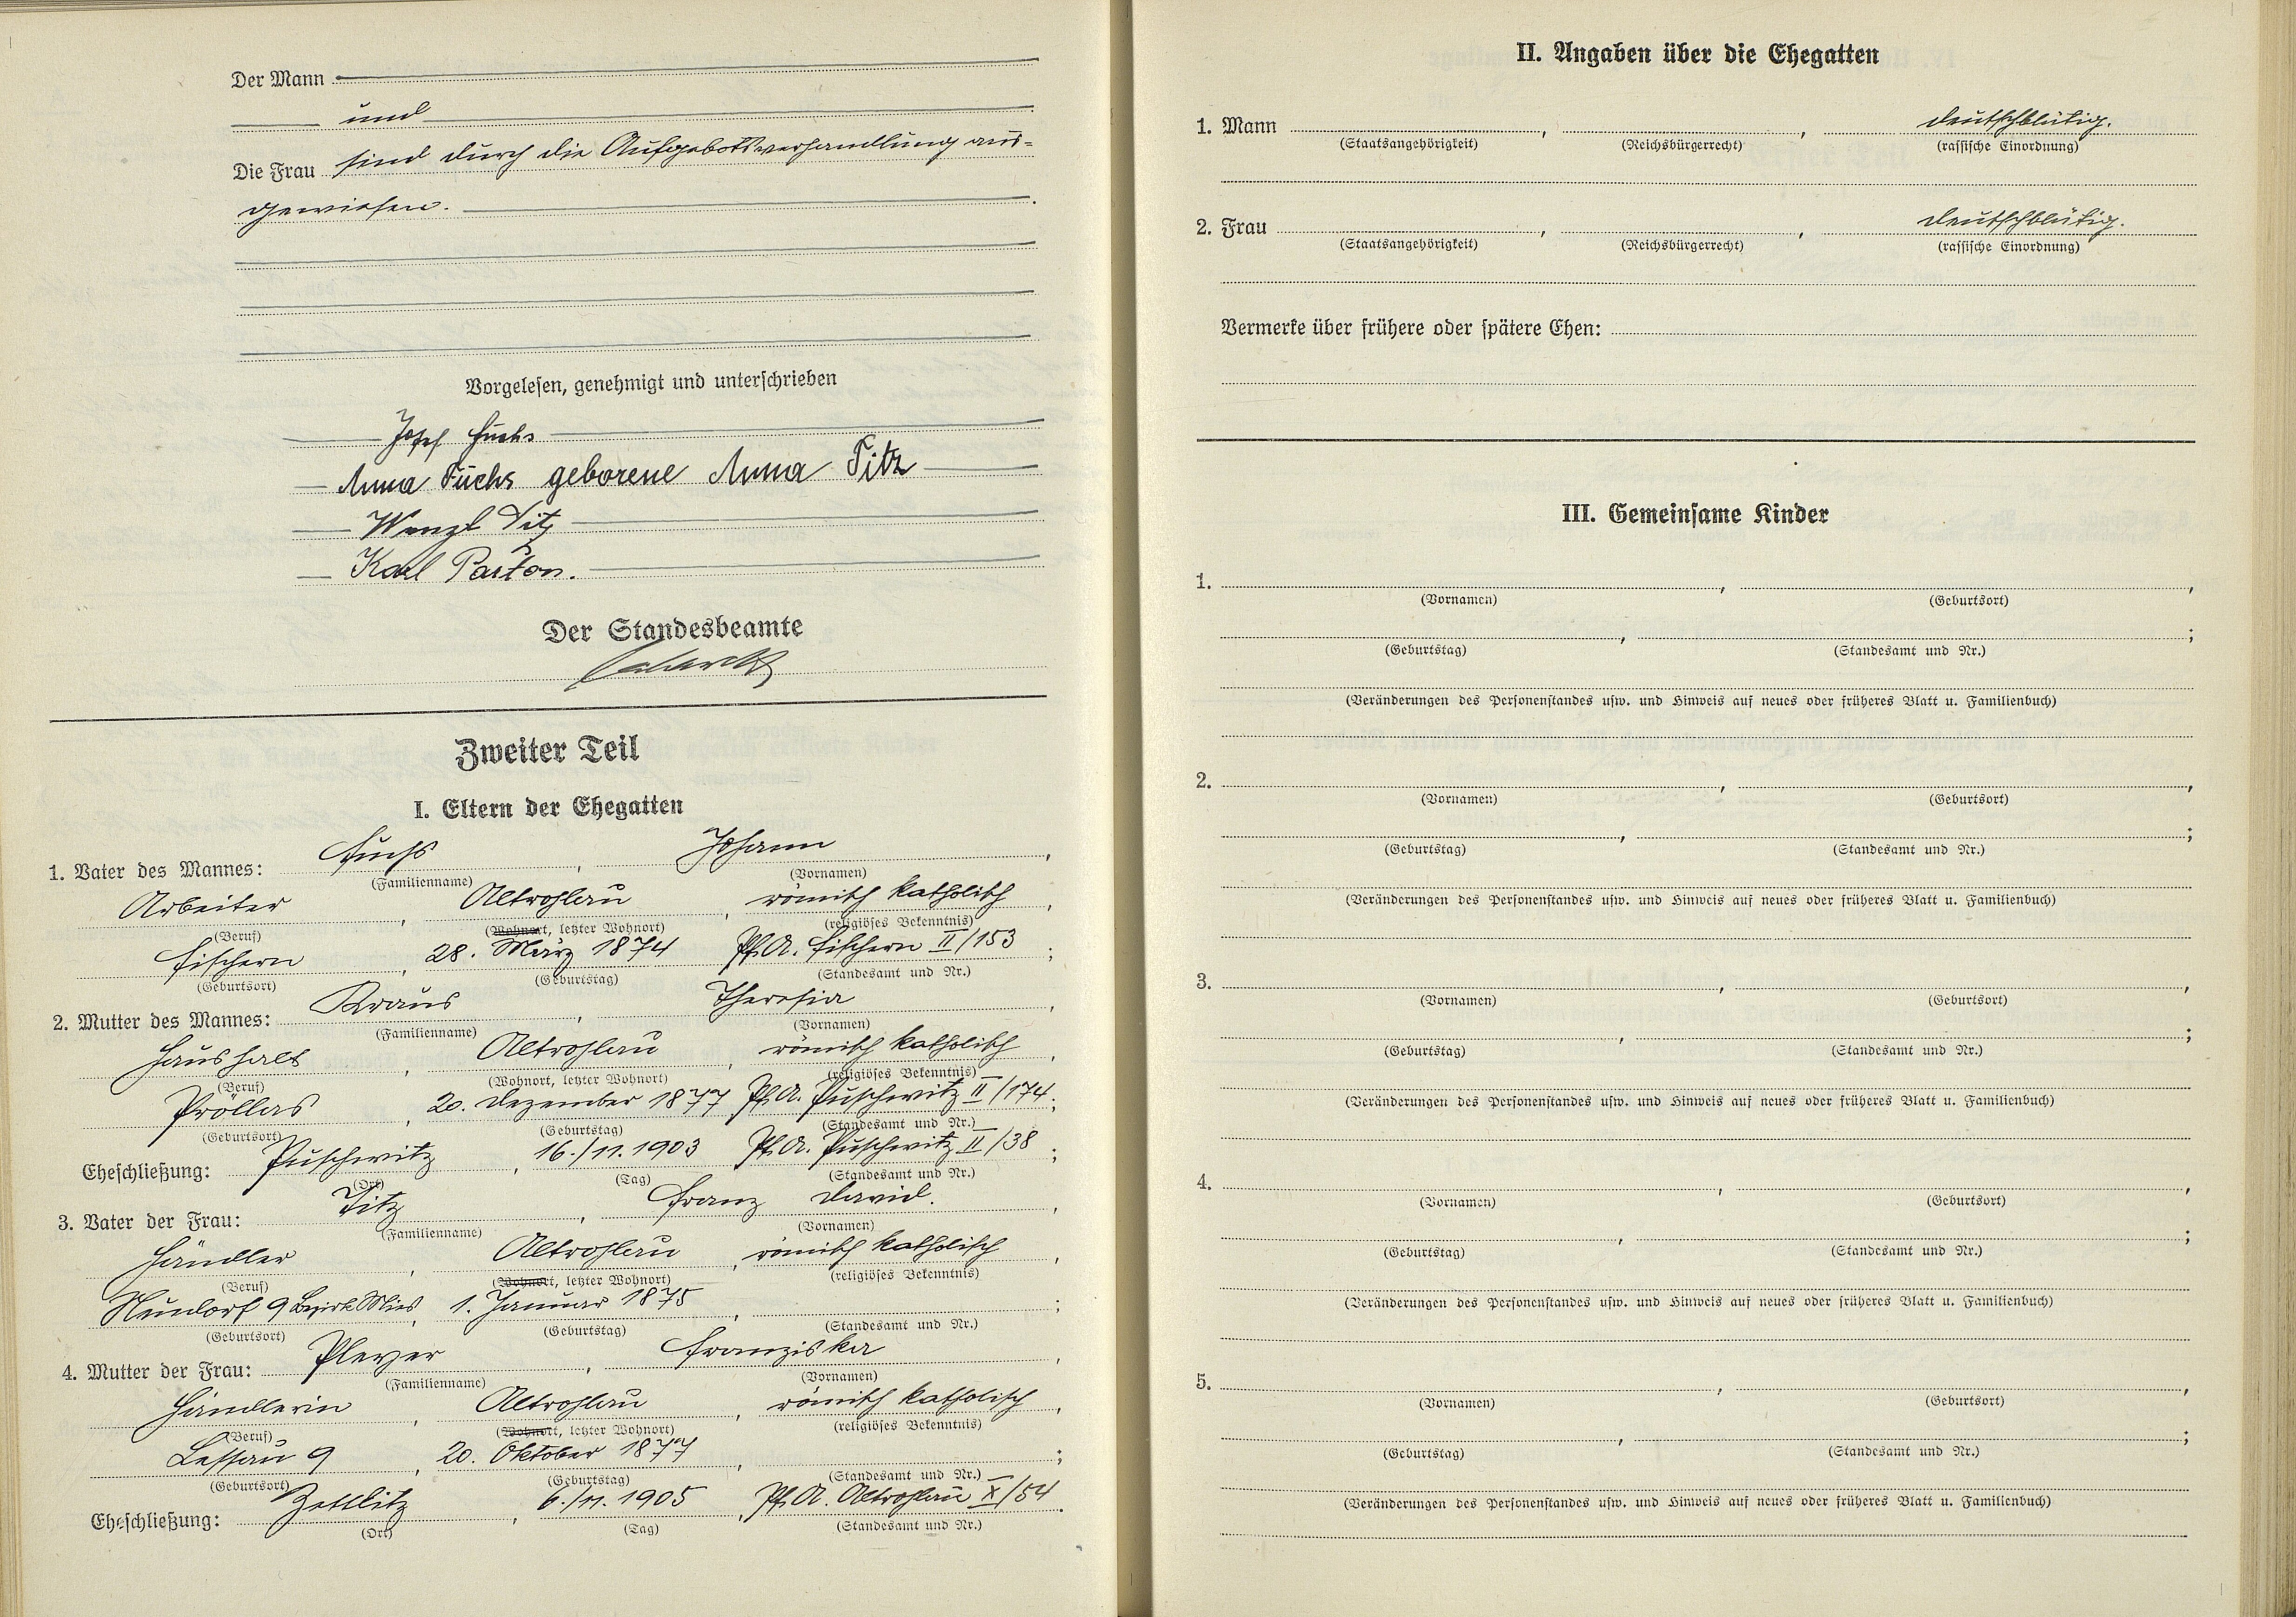 Der Mann
und
Die Frau sind durch die Aufgebotsverhandlung aus=
gewiesen.
Vorgelesen, genehmigt und unterschrieben
Josef Fuchs
Anna Fuchs geborene Anna Titz
Wenzl Titz
Karl Parton.
Der Standesbeamte
Zweiter Teil
I. Eltern der Ehegatten
1. Vater des Mannes: Fuchs, Johann,
(Familienname) (Vornamen)
Arbeiter, Altrohlau, römisch katholisch,
(Beruf) (Wohnort, letzter Wohnort) (religiöses Bekenntnis)
Fischern, 28. März 1874 Pf. A. Fischern II/153;
(Geburtsort) (Geburtstag) (Standesamt und Nr.)
2. Mutter des Mannes: Kraus, Theresia,
(Familienname) (Vornamen)
Haushalt, Altrohlau, römisch katholisch,
(Beruf) (Wohnort, letzter Wohnort) (religiöses Bekenntnis)
Pröllas, 20. Dezember 1877 Pf. A. Puschwitz II/174;
(Geburtsort) (Geburtstag) (Standesamt und Nr.)
Eheschließung: Puschwitz, 16./11. 1903 Pf. A. Puschwitz II/38;
(Ort) (Tag) (Standesamt und Nr.)
3. Vater der Frau: Titz, Franz David.,
(Familienname) (Vornamen)
Händler, Altrohlau, römisch katholisch,
(Beruf) (Wohnort, letzter Wohnort) (religiöses Bekenntnis)
Neudorf 9 Bezirk Mies, 1. Januar 1875, ;
(Geburtsort) (Geburtstag) (Standesamt und Nr.)
4. Mutter der Frau: Pleyer, Franziska,
(Familienname) (Vornamen)
Händlerin, Altrohlau, römisch katholisch,
(Beruf) (Wohnort, letzter Wohnort) (religiöses Bekenntnis)
Lessau 9, 20. Oktober 1877, ;
(Geburtsort) (Geburtstag) (Standesamt und Nr.)
Eheschließung: Zettlitz, 6./11. 1905, Pf. A. Altrohlau X/54.
(Ort) (Tag) (Standesamt und Nr.)
II. Angaben über die Ehegatten
1. Mann , , deutschblütig.
(Staatsangehörigkeit) (Reichsbürgerrecht) (rassische Einordnung)
2. Frau , , deutschblütig.
(Staatsangehörigkeit) (Reichsbürgerrecht) (rassische Einordnung)
Vermerke über frühere oder spätere Ehen:
III. Gemeinsame Kinder
1. , ,
(Vornamen) (Geburtsort)
, ;
(Geburtstag) (Standesamt und Nr.)
(Veränderungen des Personenstandes usw. und Hinweis auf neues oder früheres Blatt u. Familienbuch)
2. , ,
(Vornamen) (Geburtsort)
, ;
(Geburtstag) (Standesamt und Nr.)
(Veränderungen des Personenstandes usw. und Hinweis auf neues oder früheres Blatt u. Familienbuch)
3. , ,
(Vornamen) (Geburtsort)
, ;
(Geburtstag) (Standesamt und Nr.)
(Veränderungen des Personenstandes usw. und Hinweis auf neues oder früheres Blatt u. Familienbuch)
4. , ,
(Vornamen) (Geburtsort)
, ;
(Geburtstag) (Standesamt und Nr.)
(Veränderungen des Personenstandes usw. und Hinweis auf neues oder früheres Blatt u. Familienbuch)
5. , ,
(Vornamen) (Geburtsort)
, ;
(Geburtstag) (Standesamt und Nr.)
(Veränderungen des Personenstandes usw. und Hinweis auf neues oder früheres Blatt u. Familienbuch)